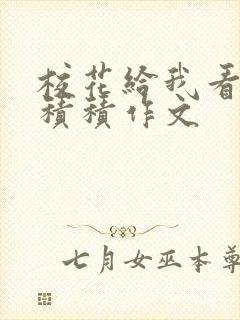 校花给我看
积积作文
七月女巫本尊